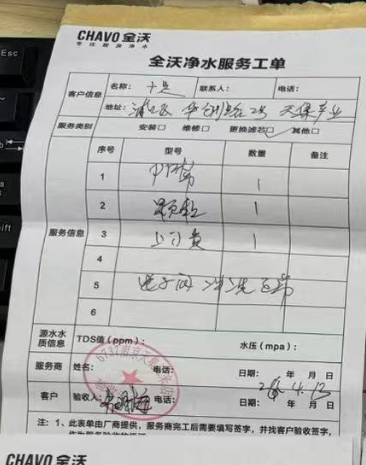 CHAVO全沃
专注健康净水
全沃净水服务工单
客户信息
名称:
联系人:
电话:
地址: 浦口区
服务类别
安装□ 维修□ 更换滤芯☑ 其他□
服务信息
序号 型号 数量 备注
1 PP棉 1
2 颗粒 1
3 上门费 1
4
5 电子阀冲洗正常
6
源水水质信息
TDS值(ppm):
水压(mpa):
服务商
姓名:
电话:
日期: 年 月 日
客户
验收人:
电话:
日期: 年 月 日
4.13
注: 1、此表单由厂商提供,服务商完工后需要填写签字,并找客户验收签字,
CHAVO全沃
Esc
Shift